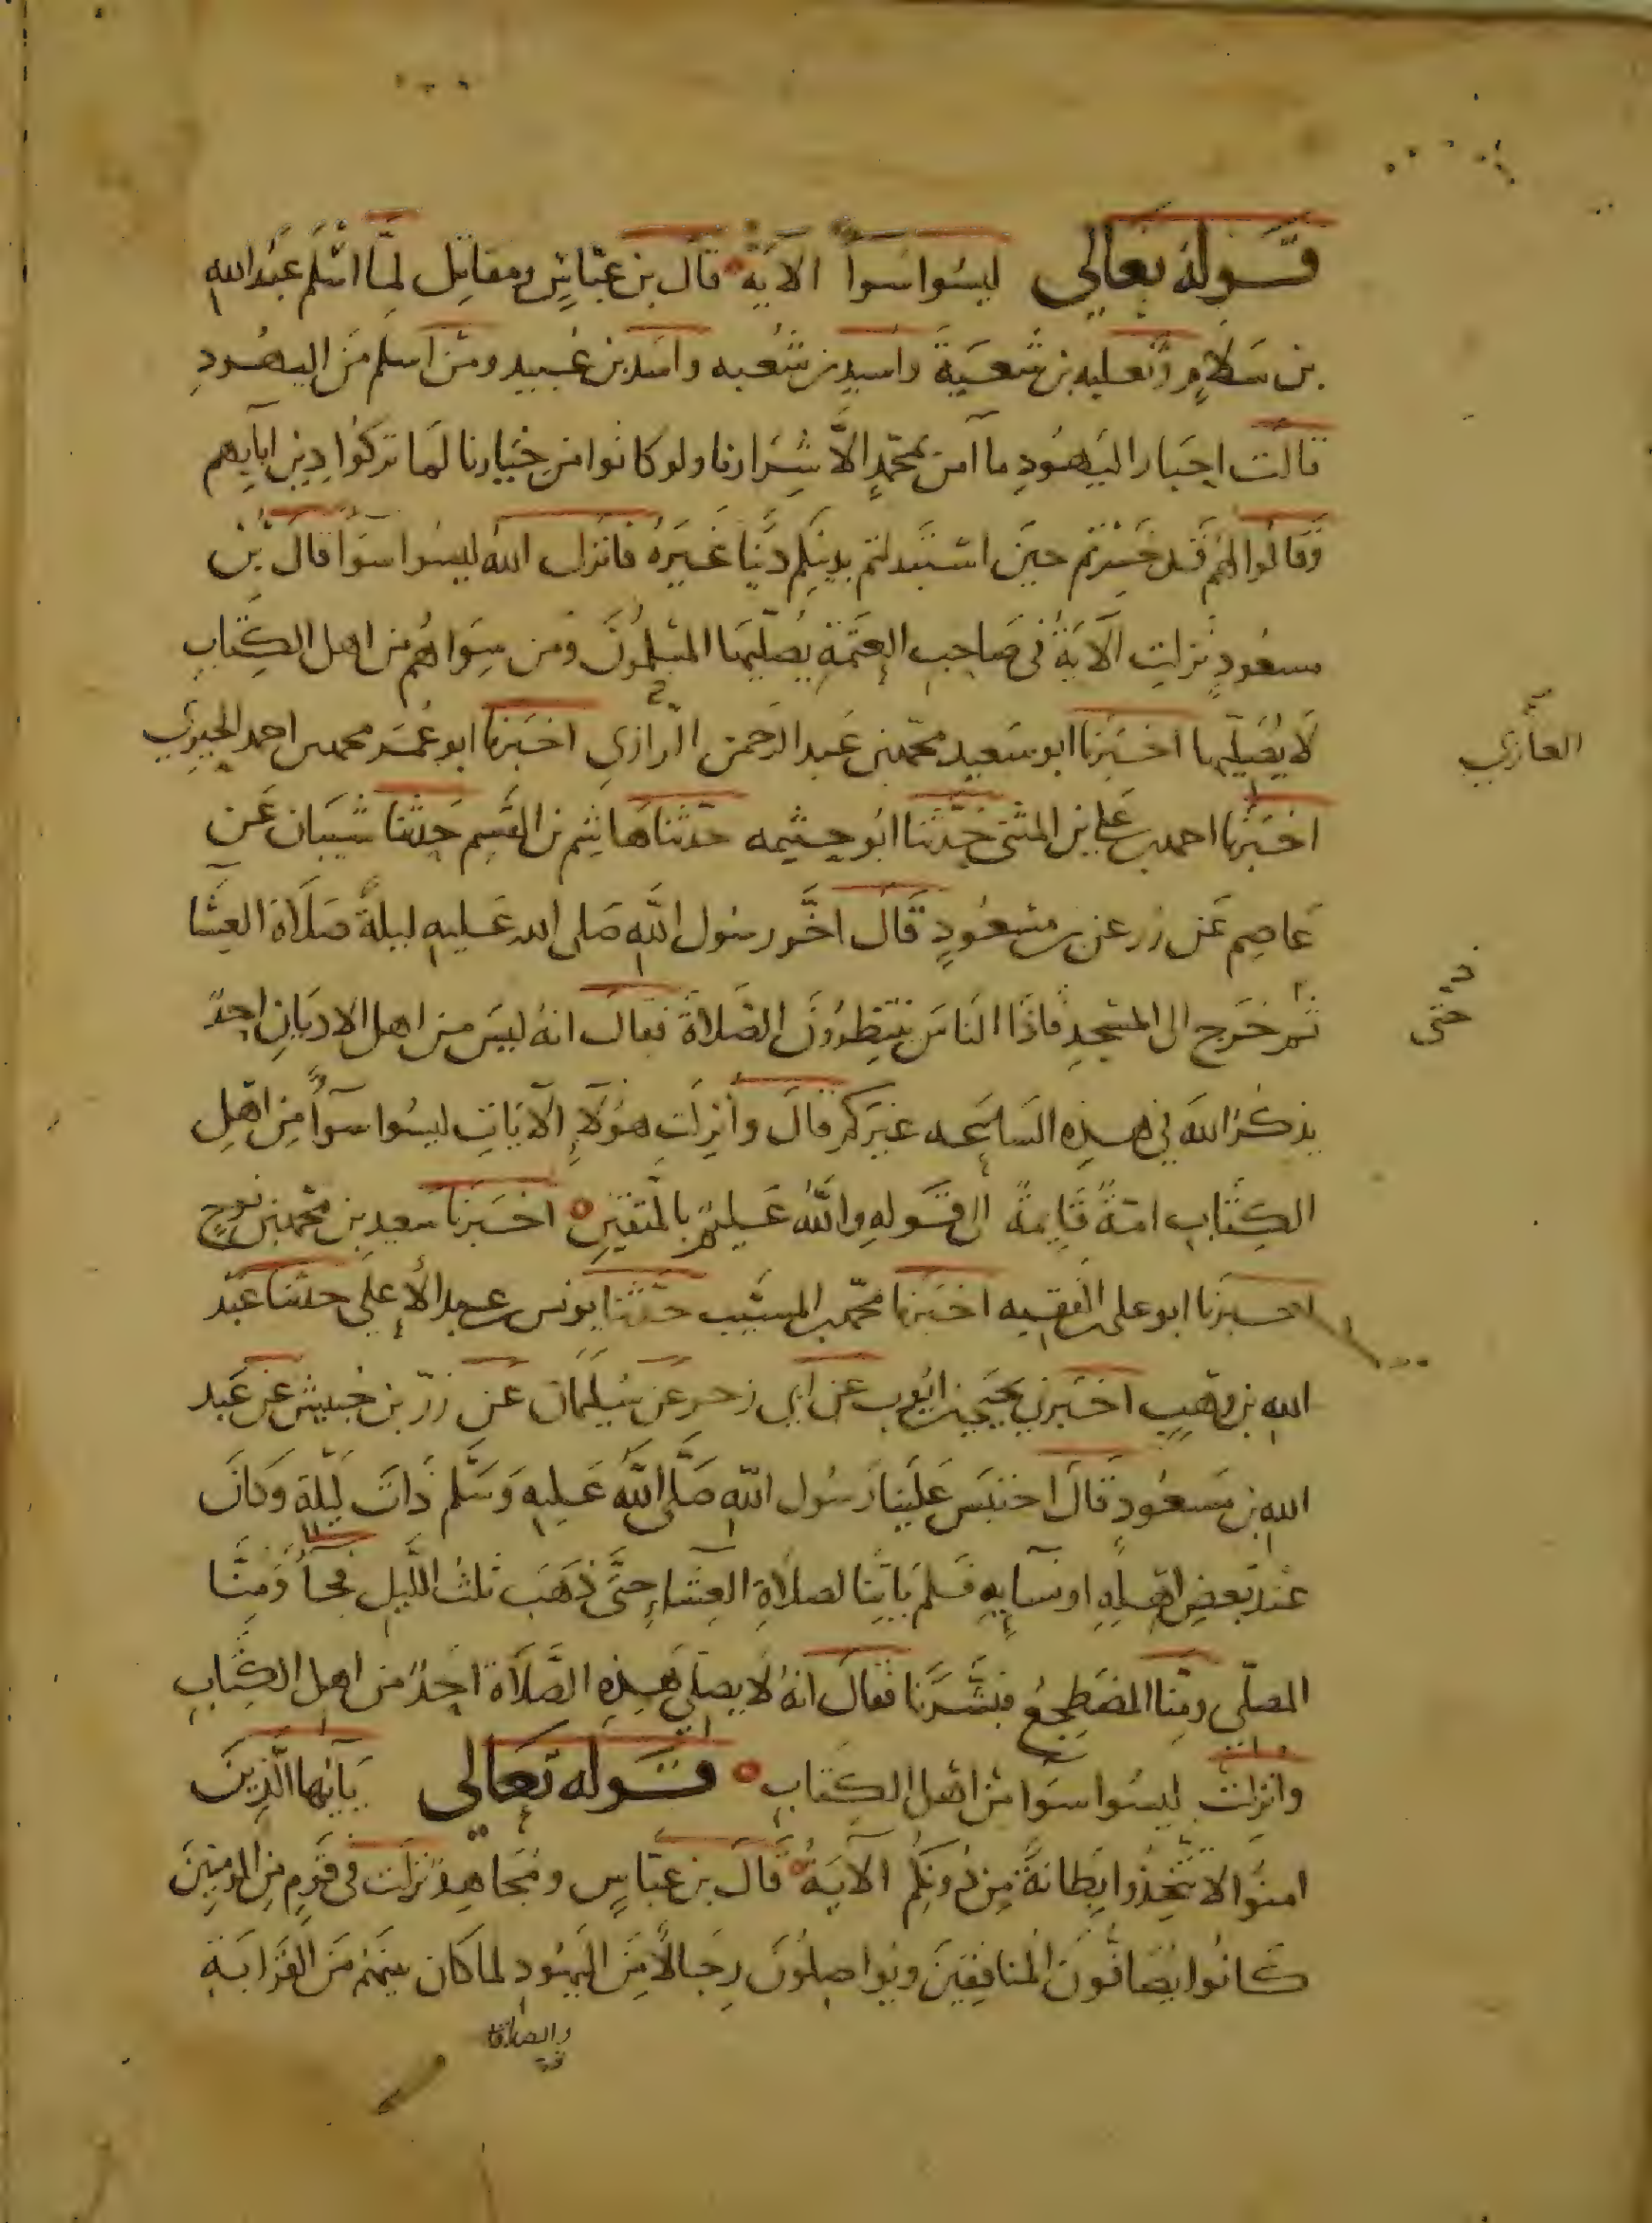 قوله تعالى ليسوا سوآ الآية قال بن عباس ومقاتل لما اسلم عبد الله
بن سلام وثعلبه بن شعية واسيد بن شعبه واسد بن عبيد ومن اسلم من اليهود
قالت احبار اليهود ما آمن بمحمد الا شرارنا ولو كانوا من خيارنا لما تركوا دين آبايهم
وقالوا لهم قد خسرتم حين استبدلتم بدينكم دينا غيره فانزل الله ليسوا سوآ قال بن
مسعود نزلت الآية في صاحب العتمة يصليها المسلمون ومن سواهم من اهل الكتاب
لا يصليها اخبرنا ابو سعيد محمد بن عبد الرحمن الرازي اخبرنا ابو عمر محمد بن احمد الحيري
الغازي
اخبرنا احمد بن علي بن المثنى حدثنا ابو خيثمه حدثنا هاشم بن القسم حدثنا شيبان عن
عاصم عن زر عن بن مسعود قال اخر رسول الله صلى الله عليه ليلة صلاة العشا
ثم خرج الى المسجد فاذا الناس ينتظرون الصلاة فقال انه ليس من اهل الاديان احد
حتى
يذكر الله في هذه الساعه غيركم قال وانزلت هؤلاء الآيات ليسوا سوآ من اهل
الكتاب امة قايمة الى قوله والله عليم بالمتقين اخبرنا سعيد بن محمد بن نوح
اخبرنا ابو على الفقيه اخبرنا محمد بن المسيب حدثنا يونس بن عبد الأعلى حدثنا عبد
الله بن وهب اخبرني يحيى بن ايوب عن ابي زحر عن سليمان عن زر بن حبيش عن عبد
الله بن مسعود قال احتبس علينا رسول الله صلى الله عليه وسلم ذات ليلة وكان
عند بعض اهله او نسآيه فلم ياتنا لصلاة العشاء حتى ذهب ثلث الليل فجآ ومنا
المصلي ومنا المضطجع فبشرنا فقال انه لا يصلي هذه الصلاة احد من اهل الكتاب
وانزلت ليسوا سوآ من اهل الكتاب قوله تعالى يآيها الذين
امنوا لا تتخذوا بطانة من دونكم الآية قال بن عباس ومجاهد نزلت في قوم من المومنين
كانوا يصافون المنافقين ويواصلون رجالا من اليهود لما كان بينهم من القرابة
والصداقة